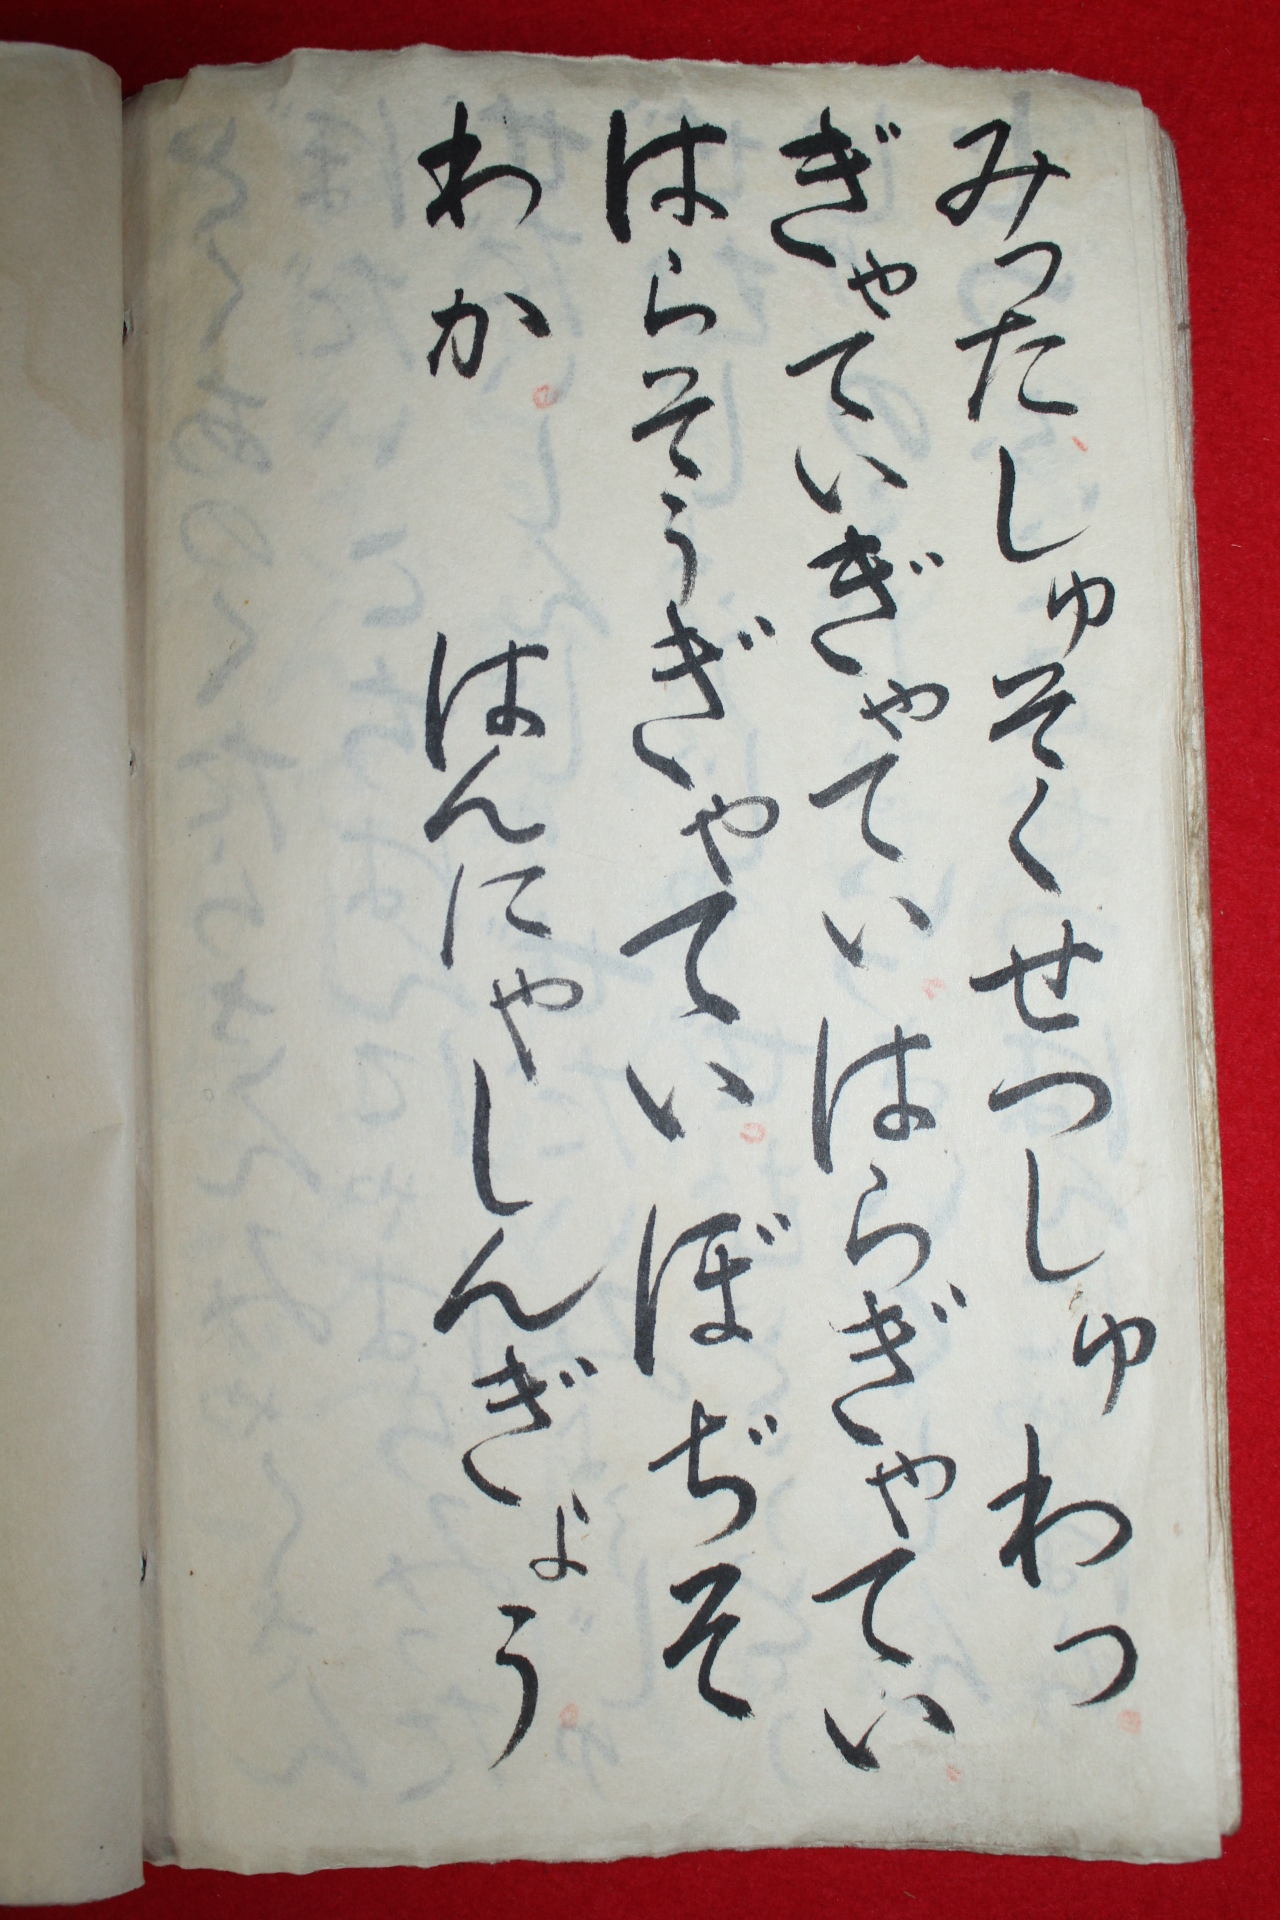 みったしゅそくせつしゅわっ
ぎゃていぎゃていはらぎゃてい
はらそうぎゃていぼぢそ
わか　はんにやしんぎょう